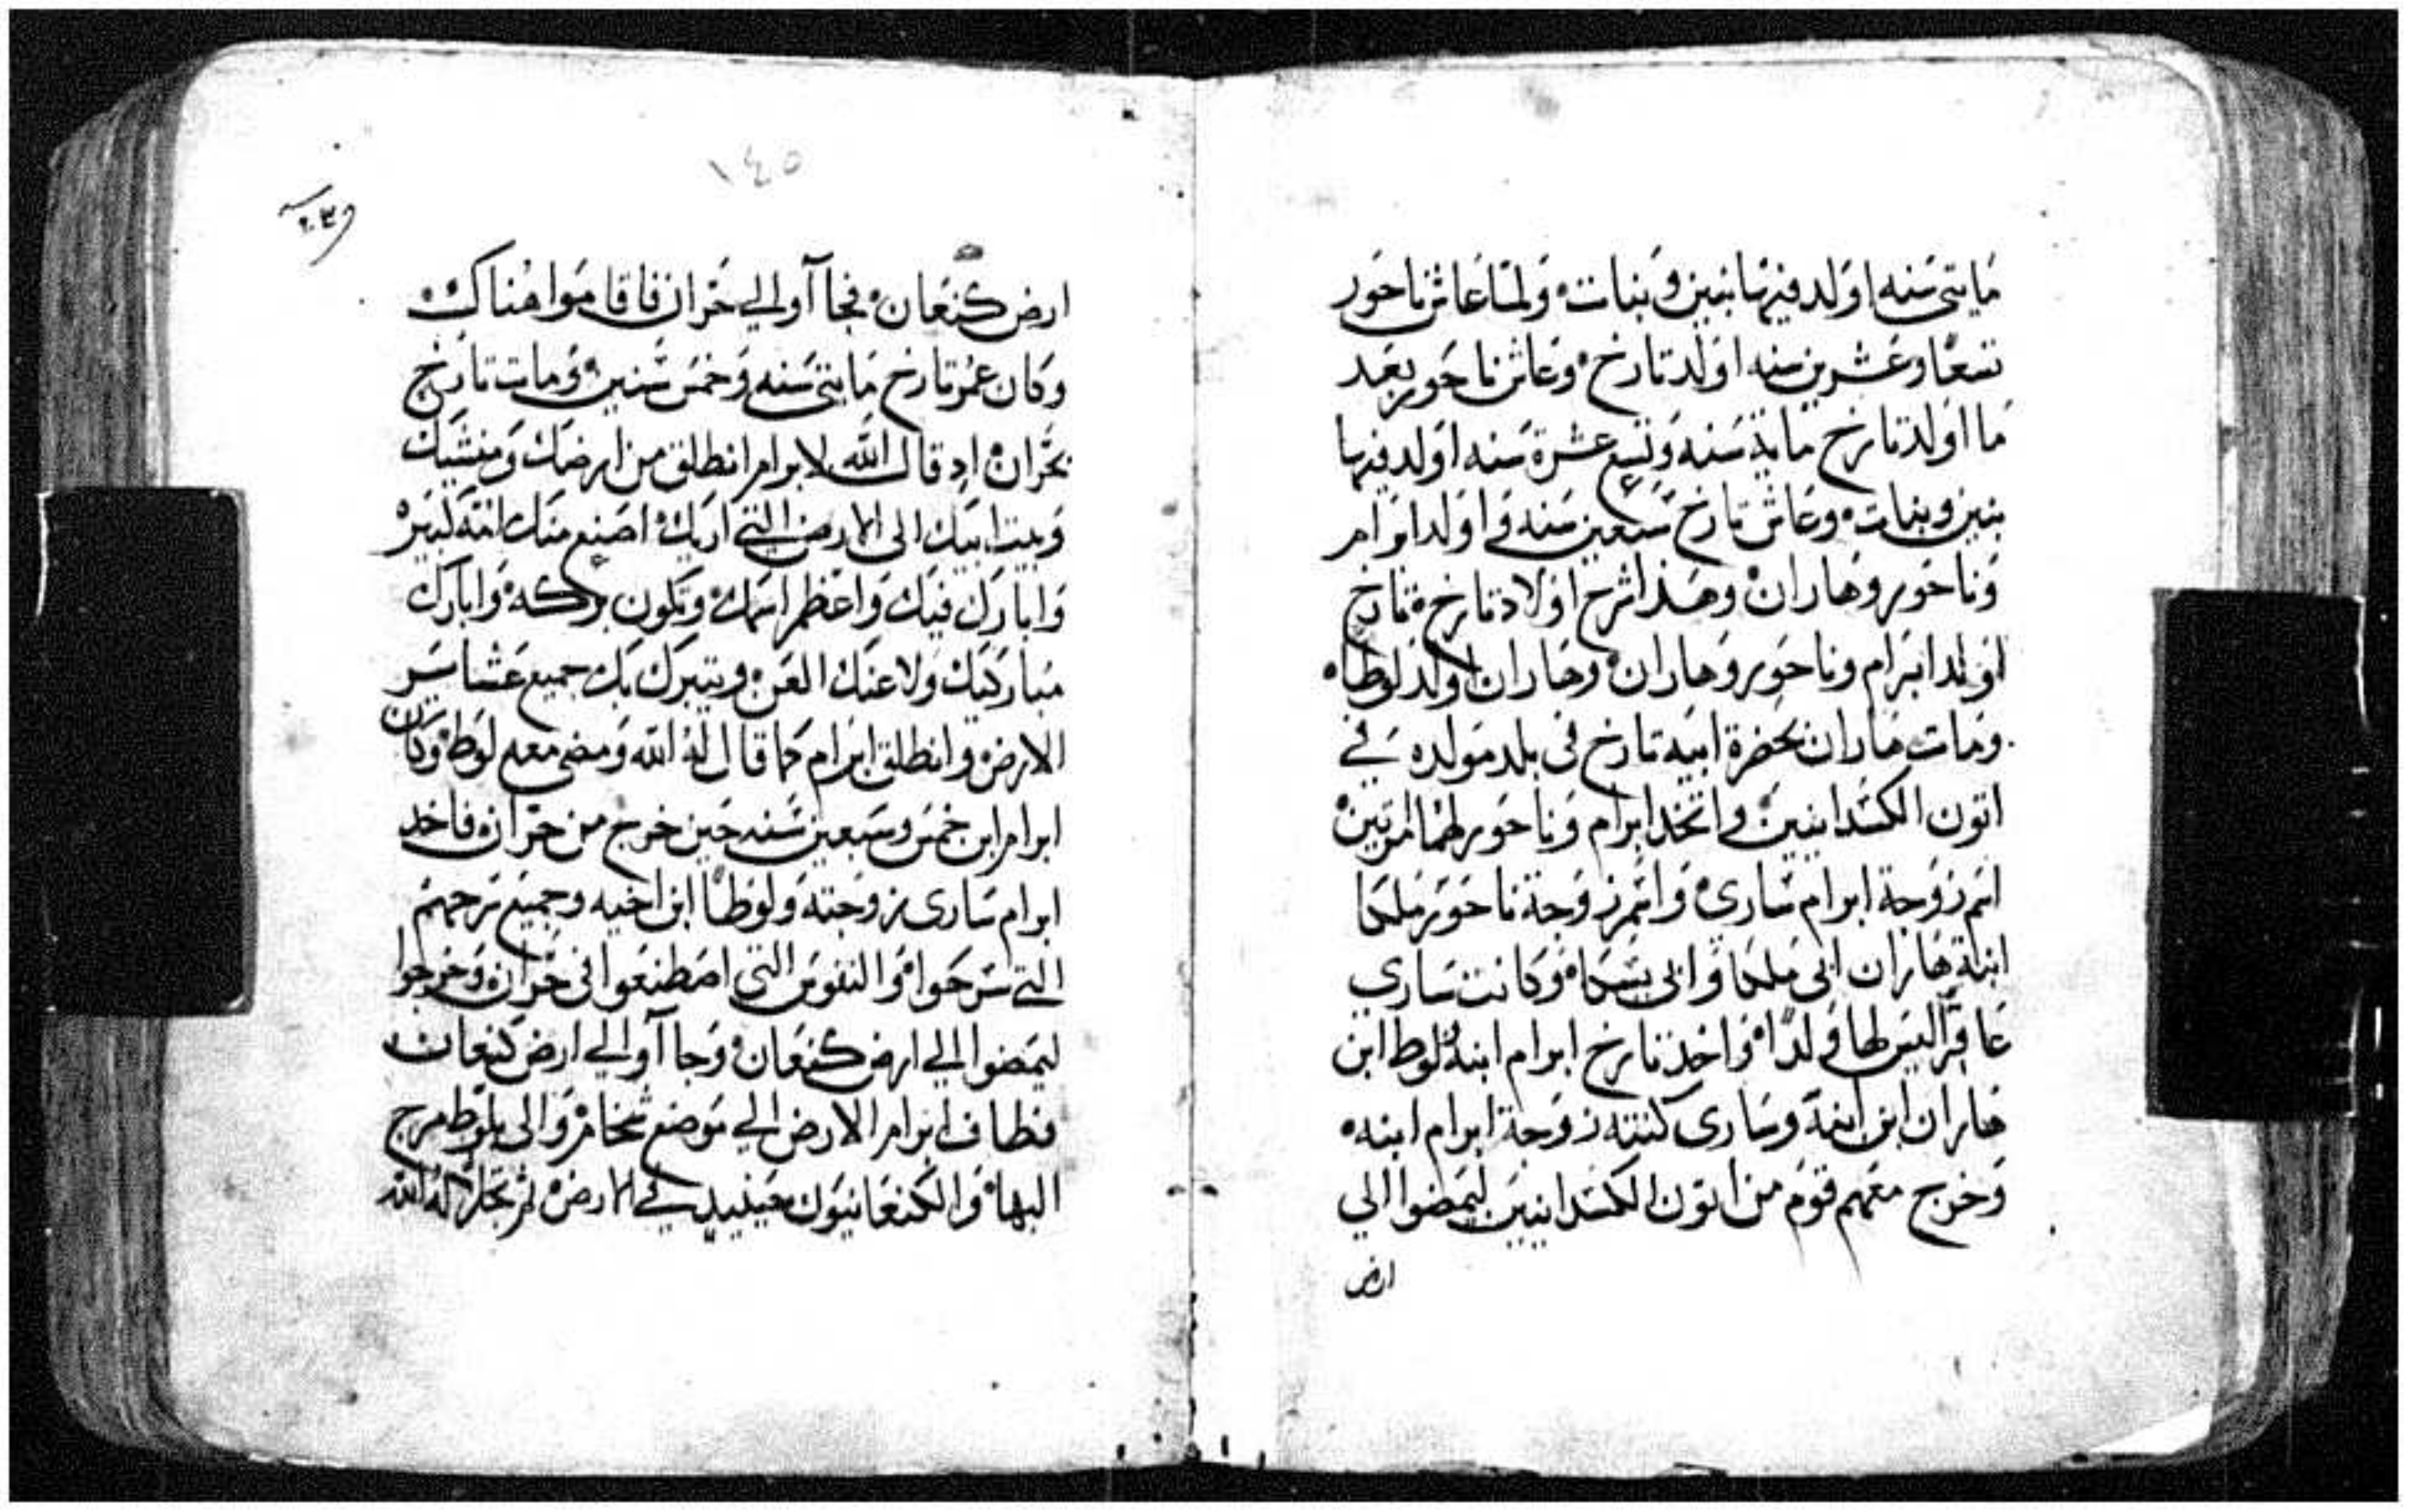 مايتى سنه اولد فيها بنين وبنات ولما عاش ناحور
تسعا وعشرين سنه اولد تارخ وعاش ناحور بعد
ما اولد تارخ ماية سنه وتسع عشرة سنه اولد فيها
بنين وبنات وعاش تارخ سبعين سنه و اولد ابرام
وناحور وهاران وهذا شرح اولاد تارخ تارخ
اولد ابرام وناحور وهاران وهاران اولد لوطا
ومات هاران بحضرة ابيه تارخ فى بلد مولده في
اتون الكسدانيين و اتخد ابرام وناحور لهما امرتين
اسم زوجة ابرام سارى واسم زوجة ناحور ملكا
ابنة هاران ابى ملكا وابى يسكا وكانت ساري
عاقرا ليس لها ولدا واخد تارخ ابرام ابنه ولوط ابن
هاران ابن ابنه وسارى كنته زوجة ابرام ابنه
وخرج معهم قوم من اتون الكسدانيين ليمضوا الي
ارض
١٤٥
ارض كنعان فجاآوا الي حران فاقاموا هناك
وكان عمر تارخ مايتى سنه وخمس سنين ومات تارخ
بحران اد قال الله لابرام انطلق من ارضك ومنشيك
وبيت ابيك الى الارض التي اريك اصنع منك امة كبيره
وابارك فيك واعظم اسمك وتكون بركه وابارك
مباركيك ولاعنك العن ويتبرك بك جميع عشاير
الارض وانطلق ابرام كما قال له الله ومضى معه لوط وكان
ابرام ابن خمس وسبعين سنه حين خرج من حران فاخد
ابرام سارى زوجته ولوطا ابن اخيه وجميع سرحهم
التي سرحوا والنفوس التى اصطنعوا فى حران وخرجوا
ليمضوا الي ارض كنعان وجاآوا الي ارض كنعان
فطاف ابرام الارض الي موضع شخام والى بلوط مرج
البها والكنعانيون حينيد في الارض ثم تجلا له الله